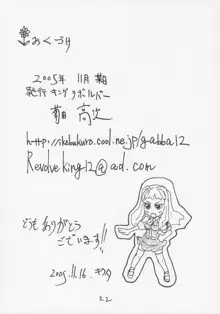 おくづけ
2005年 11月 発行
発行 キングリボルバー
高史
http://ikebukuro.cool.ne.jp/gabba12
Revolveking12@aol.com
どうも ありがとう
ございます!!
2005.11.16.
22